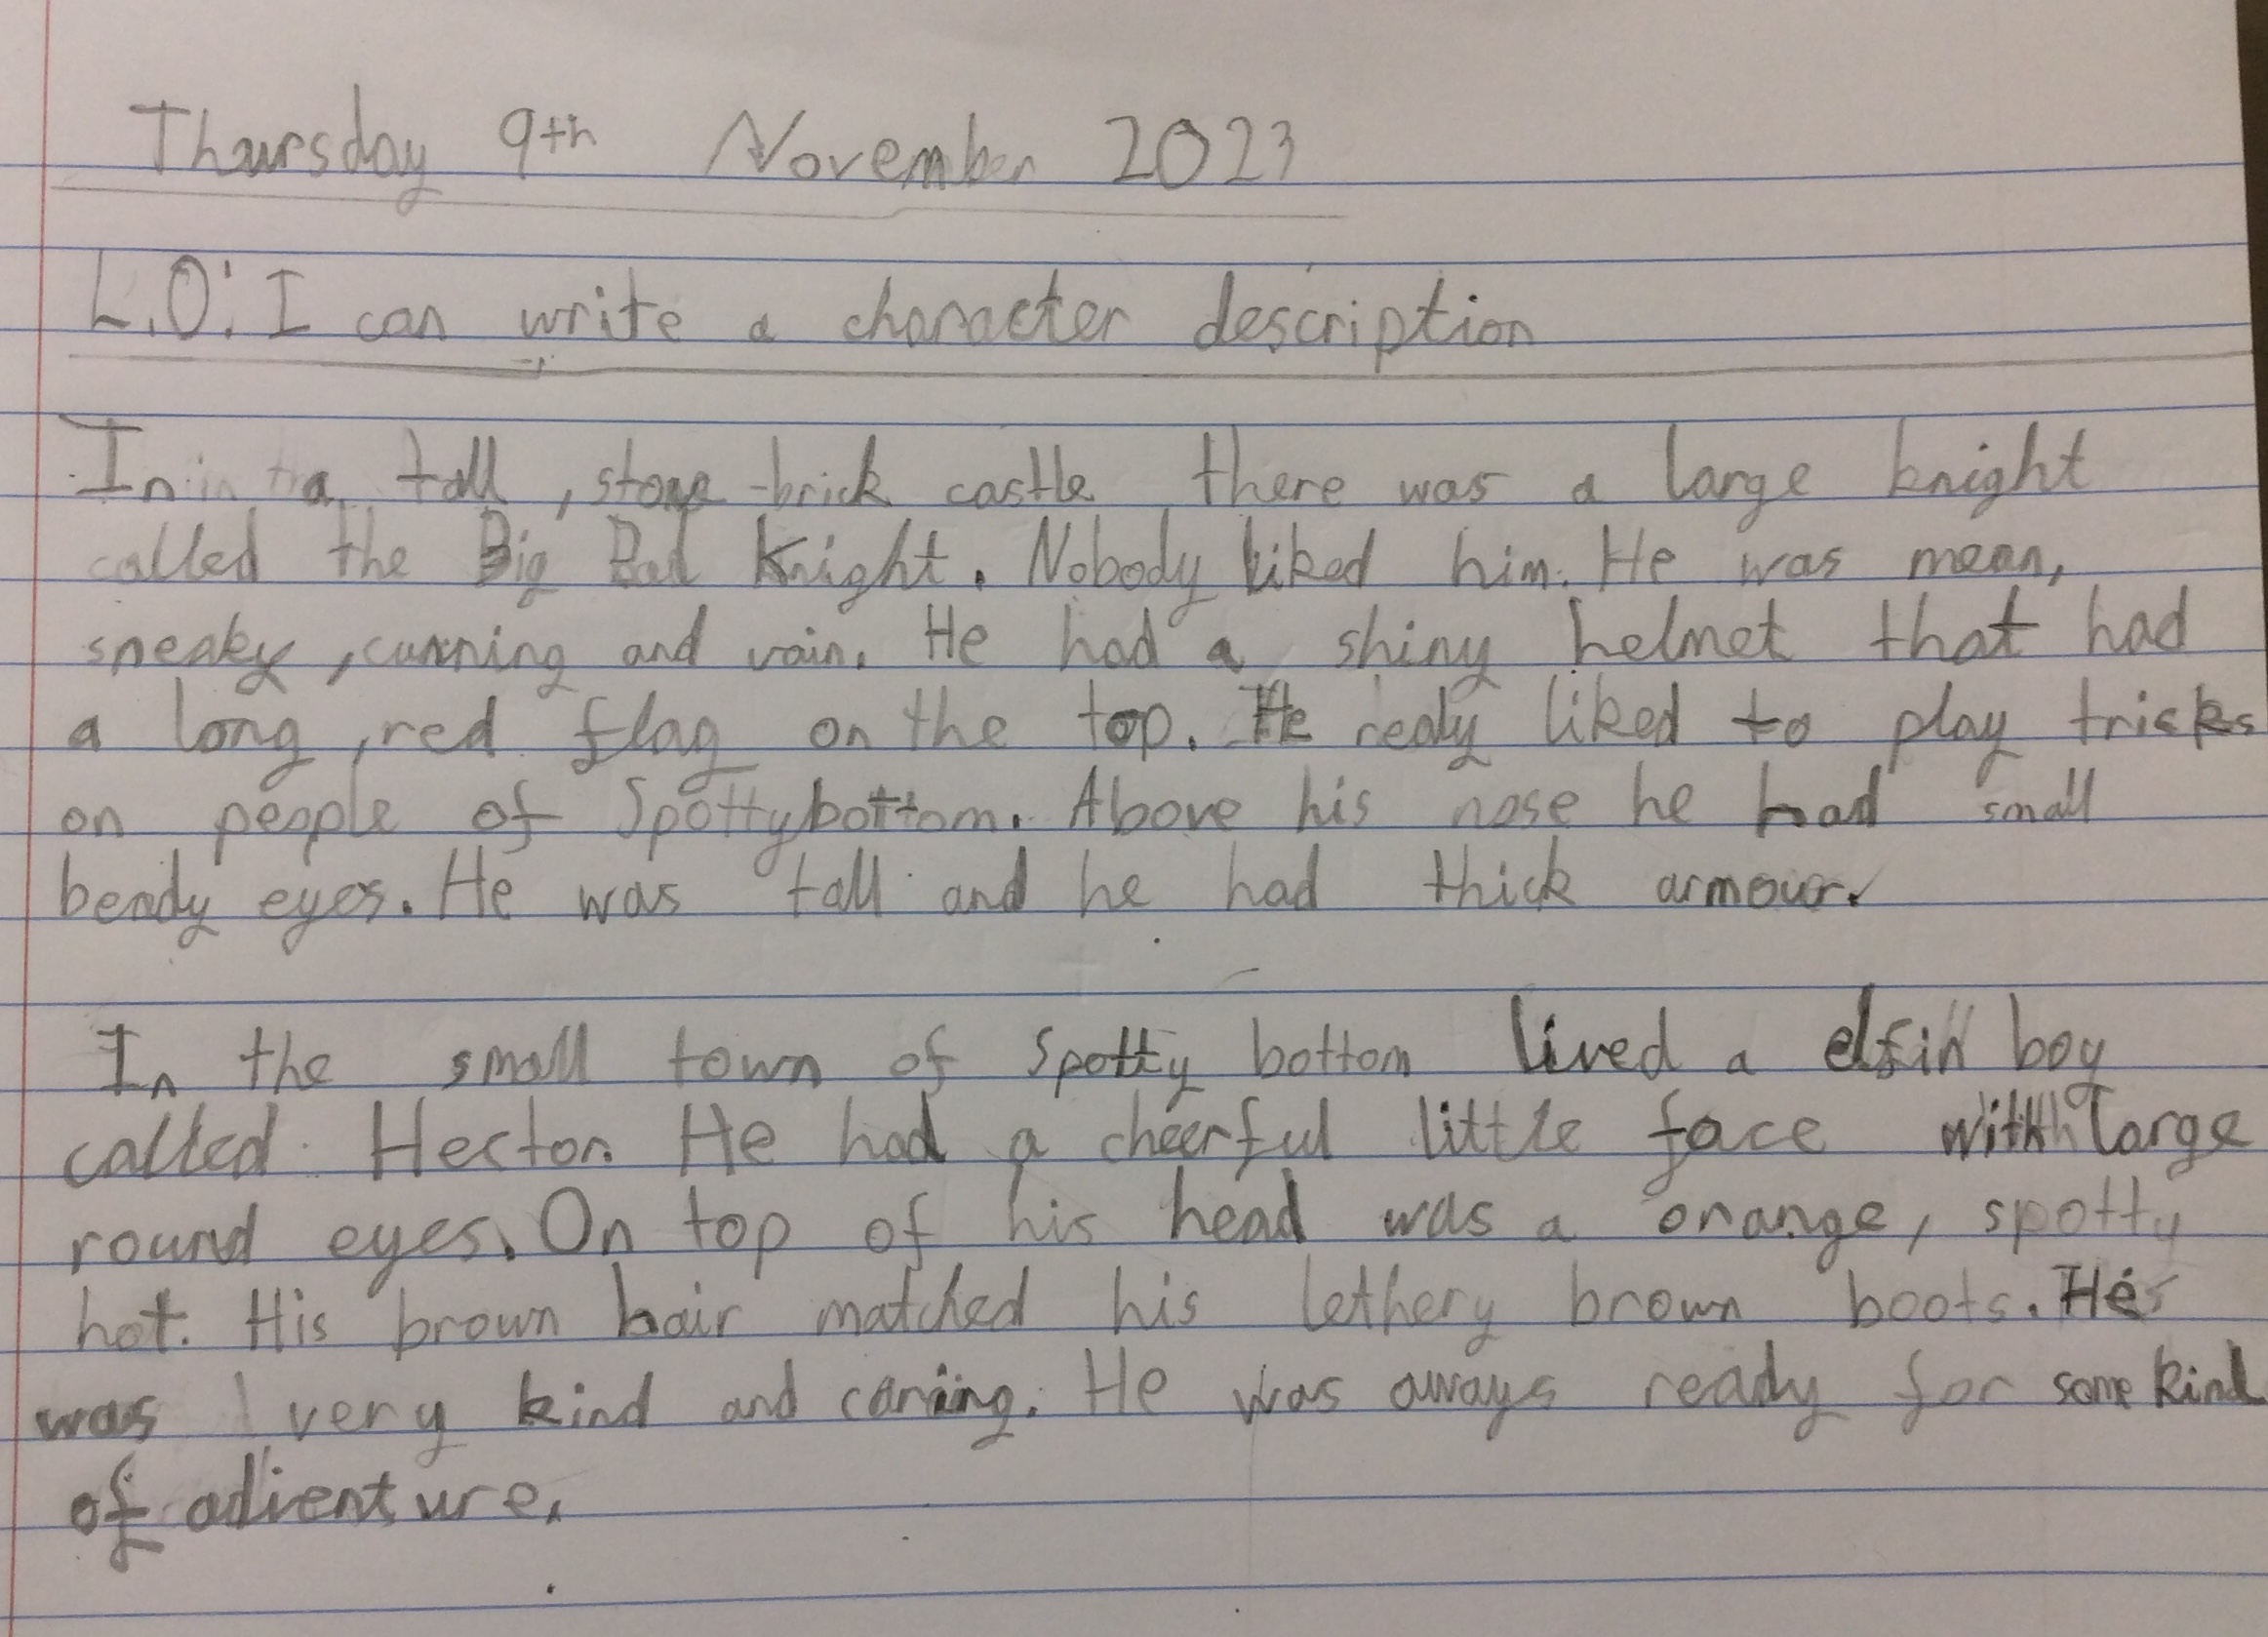 Thursday 9th November 2023
L.O: I can write a character description
In a tall, stone-brick castle there was a large knight
called the Big Bad Knight. Nobody liked him. He was mean,
sneaky, cunning and vain. He had a shiny helmet that had
a long, red flag on the top. He realy liked to play tricks
on people of Spottybottom. Above his nose he had small
beady eyes. He was tall and he had thick armour.
In the small town of Spotty bottom lived a elfin boy
called Hector. He had a cheerful little face with large
round eyes. On top of his head was a orange, spotty
hat. His brown hair matched his lethery brown boots. He
was very kind and caring. He was aways ready for some kind
of adventure.